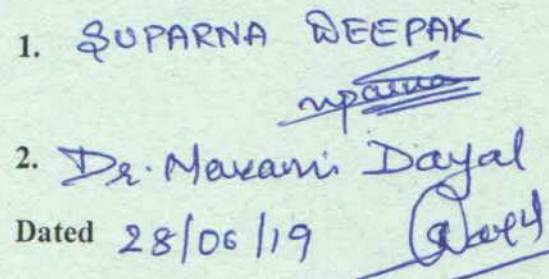 1. SUPARNA DEEPAK
2. Dr. Mavani Dayal
Dated 28/06/19